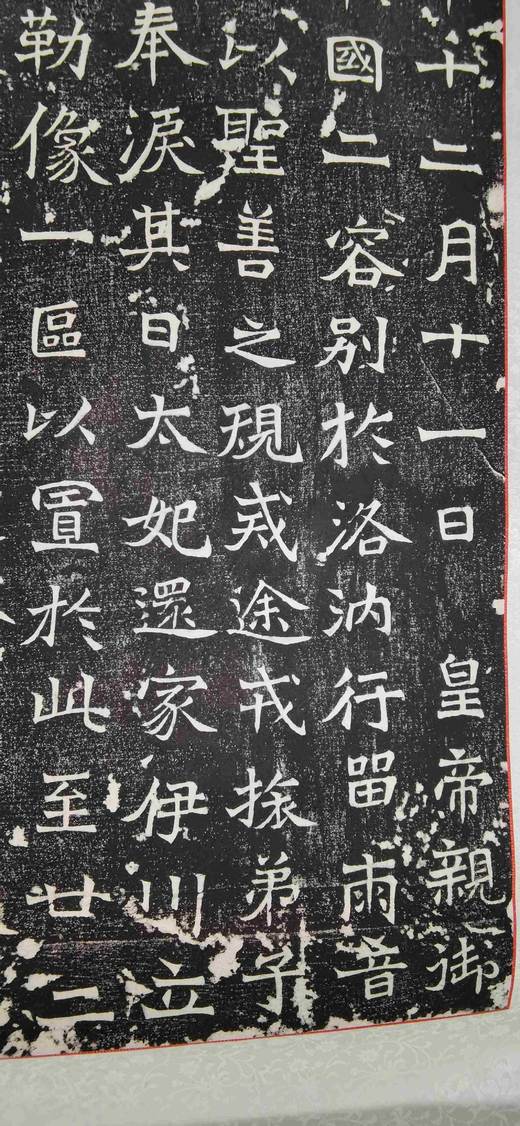 十二月十一日 皇帝親御
國二容別於洛汭行留雨音
以聖善之規戒途戎旅弟子
奉淚其日太妃還家伊川立
勒像一區以置於此至廿二